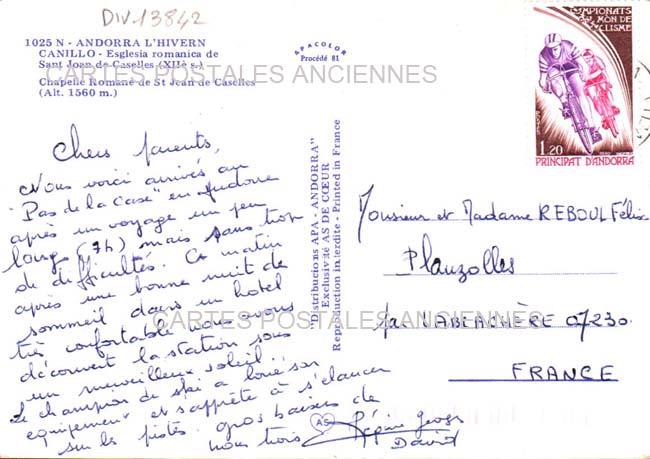 DIV13842
1025 N - ANDORRA L'HIVERN
CANILLO - Esglesia romanica de
Sant Joan de Caselles (XIIè s.)
CARTES POSTALES ANCIENNES
Chapelle Romane de St Jean de Caselles
(Alt. 1560 m.)
APACOLOR
Procédé 81
CAMPIONATS
MON DE
CICLISME
1.20
PRINCIPAT D'ANDORRA
Chers parents,
Nous voici arrivés au
"Pas de la Case" en Andorre
après un voyage un peu
long (7h) mais sans trop
de difficultés. Ce matin
après une bonne nuit de
sommeil dans un hotel
très confortable nous avons
découvert la station sous
un merveilleux soleil...
Le champion de ski a loué son
équipement et s'apprête à s'élancer
sur les pistes. gros baisers de
nous trois
Régine
David
AS
"Distribucions APA - ANDORRA"
Exclusivité AS DE CŒUR
Reproduction interdite - Printed in France
Monsieur et Madame REBOUL Félix
Planzolles
par LABLACHÈRE 07230
FRANCE
CARTES POSTALES ANCIENNES